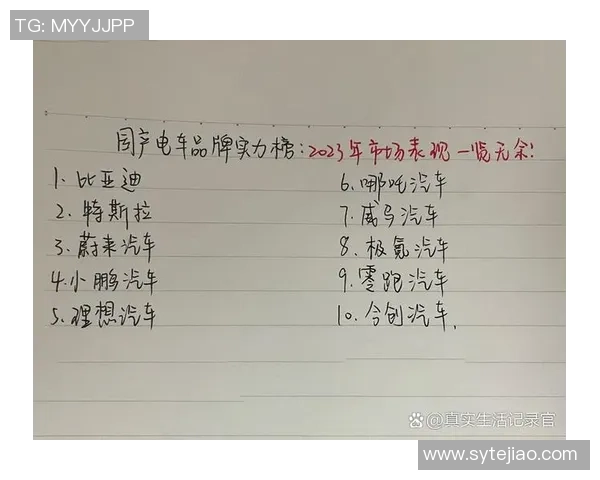 TG: MYYJJPP
国产电车品牌实力榜:2023年市场表现一览无余!
1. 比亚迪
2. 特斯拉
3. 蔚来汽车
4. 小鹏汽车
5. 理想汽车
6. 哪吒汽车
7. 威马汽车
8. 极氪汽车
9. 零跑汽车
10. 今创汽车.
@真实生活记录官
www.sytejiao.com